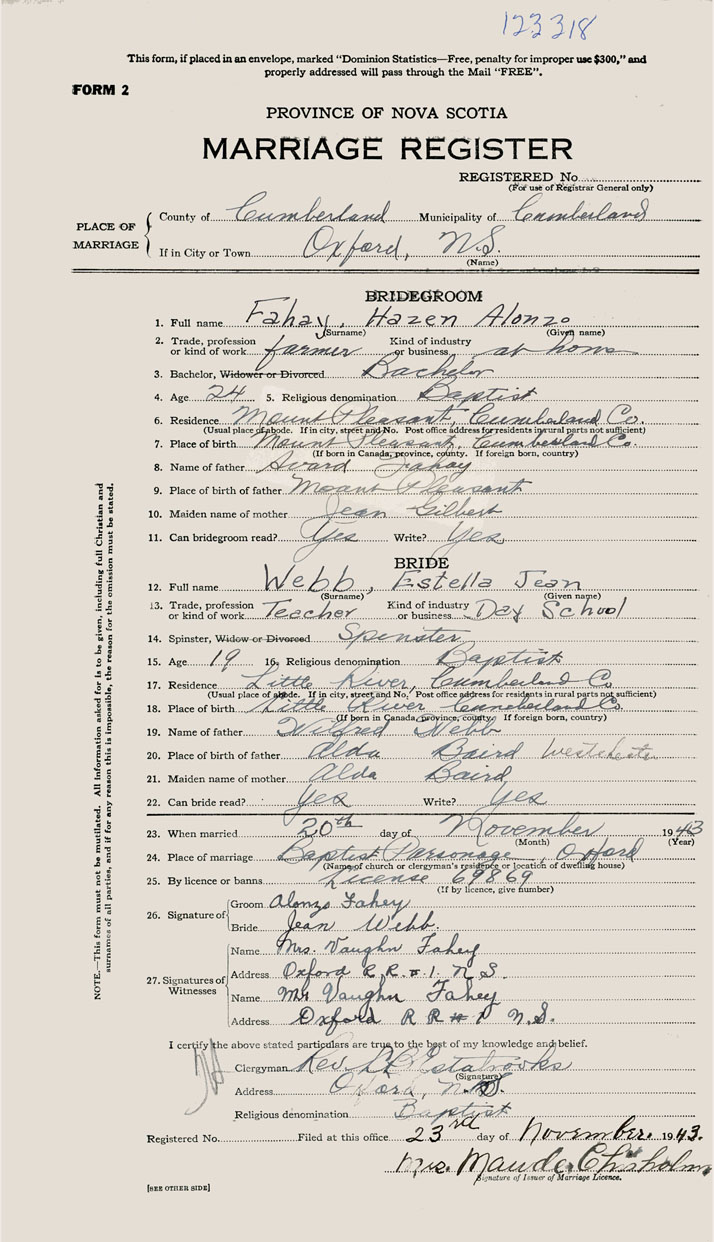 123318
This form, if placed in an envelope, marked "Dominion Statistics—Free, penalty for improper use $300," and
properly addressed will pass through the Mail "FREE".
FORM 2
PROVINCE OF NOVA SCOTIA
MARRIAGE REGISTER
REGISTERED No.
(For use of Registrar General only)
PLACE OF MARRIAGE
County of Cumberland Municipality of Cumberland
If in City or Town Oxford, N.S.
(Name)
BRIDEGROOM
1. Full name Fahay, Hazen Alonzo
(Surname) (Given name)
2. Trade, profession or kind of work farmer Kind of industry or business at home
3. Bachelor, Widower or Divorced Bachelor
4. Age 24 5. Religious denomination Baptist
6. Residence Mount Pleasant, Cumberland Co.
(Usual place of abode. If in city, street and No. Post office address for residents in rural parts not sufficient)
7. Place of birth Mount Pleasant, Cumberland Co.
(If born in Canada, province, county. If foreign born, country)
8. Name of father Avard Fahay
9. Place of birth of father Mount Pleasant
10. Maiden name of mother Jean Gilbert
11. Can bridegroom read? Yes Write? Yes
BRIDE
12. Full name Webb, Estella Jean
(Surname) (Given name)
13. Trade, profession or kind of work Teacher Kind of industry or business Day School
14. Spinster, Widow or Divorced Spinster
15. Age 19 16. Religious denomination Baptist
17. Residence Little River, Cumberland Co
(Usual place of abode. If in city, street and No. Post office address for residents in rural parts not sufficient)
18. Place of birth Little River Cumberland Co.
(If born in Canada, province, county. If foreign born, country)
19. Name of father Wilfred Webb
20. Place of birth of father Alda Baird
21. Maiden name of mother Alda Baird
22. Can bride read? yes Write? yes
23. When married 20th day of November 1943
(Month) (Year)
24. Place of marriage Baptist Parsonage, Oxford
(Name of church or clergyman's residence or location of dwelling house)
25. By licence or banns License 69869
(If by licence, give number)
26. Signature of
Groom Alonzo Fahey
Bride Jean Webb.
27. Signatures of Witnesses
Name Mrs. Vaughn Fahey
Address Oxford R.R.#1. N.S.
Name Mr Vaughn Fahey
Address Oxford R R #1 N.S.
I certify the above stated particulars are true to the best of my knowledge and belief.
Clergyman Rev. Estabrooks
(Signature)
Address Oxford, N.S.
Religious denomination Baptist
Registered No. Filed at this office 23rd day of November. 1943.
Mrs. Maude Chisholm
Signature of Issuer of Marriage Licence.
[SEE OTHER SIDE]
NOTE.—This form must not be mutilated. All information asked for is to be given, including full Christian and
surnames of all parties, and if for any reason this is impossible, the reason for the omission must be stated.